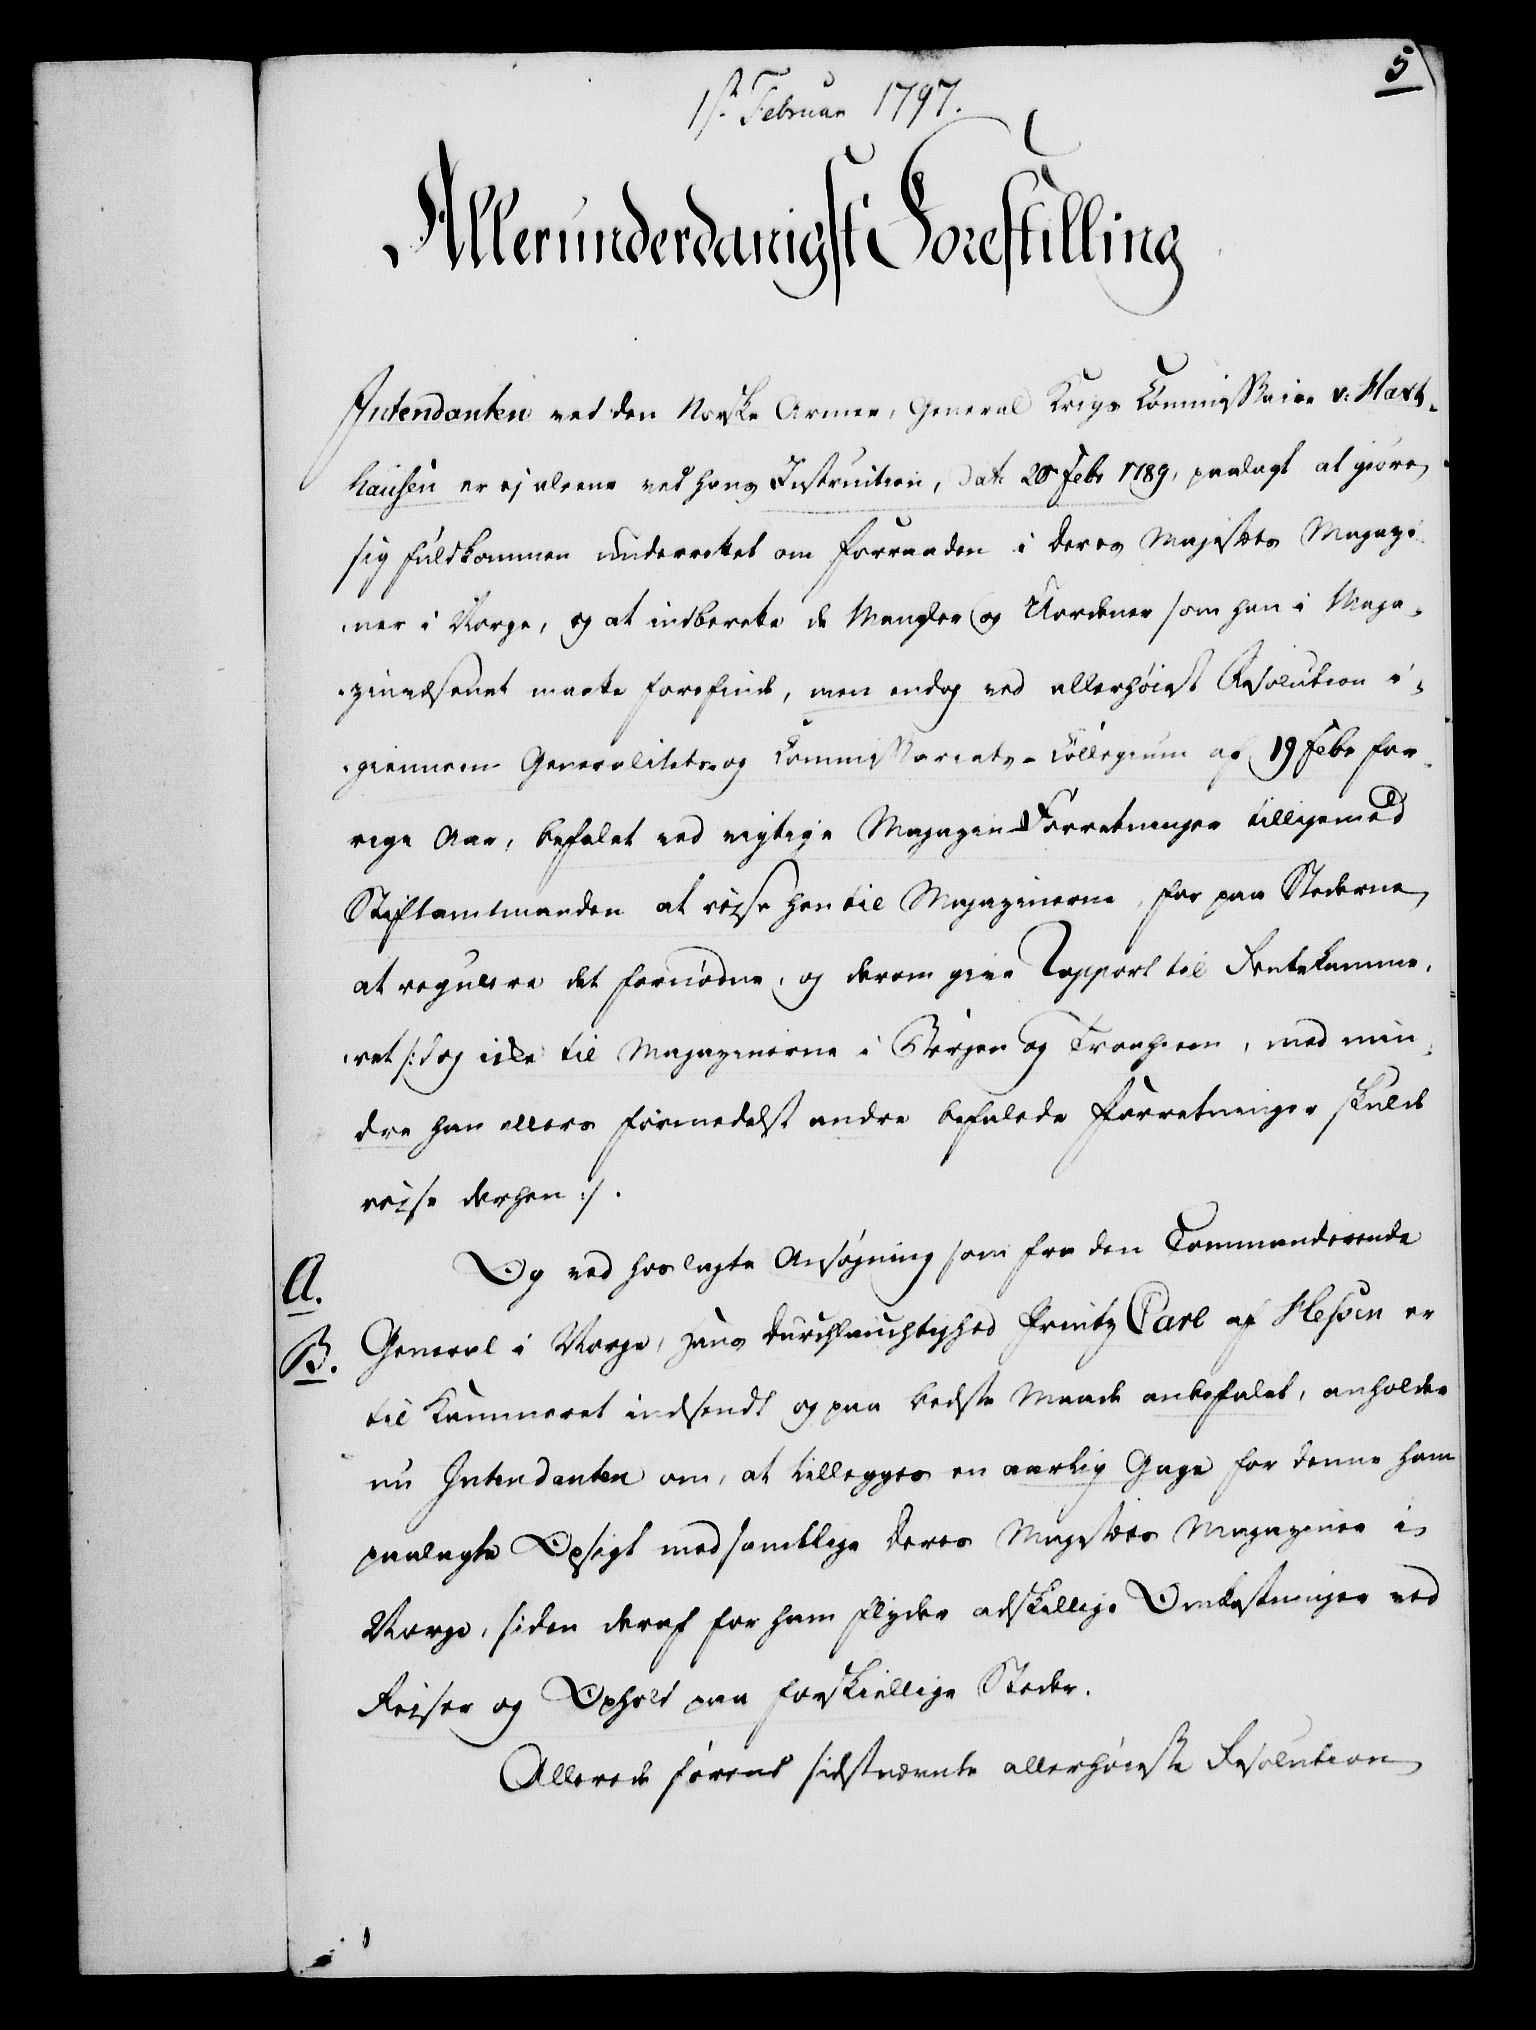 5
1st. Februar 1797.
Allerunderdanigst Forestilling
Intendanten ved den Norske Armee, General Krigs Commissaire v: Haxt-
hausen er ej alene ved hans Instruction, Dat: 20 Febr 1789, paalagt at giøre
sig fuldkommen underrettet om Forraaden i Deres Majestets Magazi-
ner i Norge, og at indberette de Mangler og Uordener som han i Maga-
zinvæsenet maatte forefinde, men endog ved allerhøiest Resolution i-
giennem Generalitets- og Commissariats-Collegium af 19 Febr for-
rige Aar, befalet ved vigtige Magazin-Forretninger tilligemed
Stiftamtmanden at reise hen til Magazinerne, for paa Stederne
at regulere det fornødne, og derom give Rapport til Rentekamme-
ret /: dog ikke til Magazinerne i Bergen og Tronhiem, med min-
dre han ellers formedelst andre befalede Forretninger skulde
reise derhen :/.
A. Og ved hoslagte Ansøgning som fra den Commanderende
B. General i Norge, Hans Durchlauchtighed Printz Carl af Hessen er
til Kammeret indsendt og paa bedste Maade anbefalet, anholder
nu Intendanten om, at tillegges en aarlig Gage for denne ham
paalagte Opsigt med samtlige Deres Majestets Magaziner i
Norge, siden deraf for ham flyder adskillige Omkostninger ved
Reiser og Ophold paa forskiellige Steder.
Allerede førend sidstnævnte allerhøieste Resolution